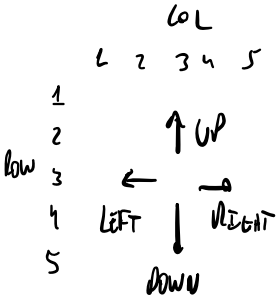 COL
1 2 3 4 5
1
2
UP
ROW 3
4 LEFT RIGHT
5
DOWN